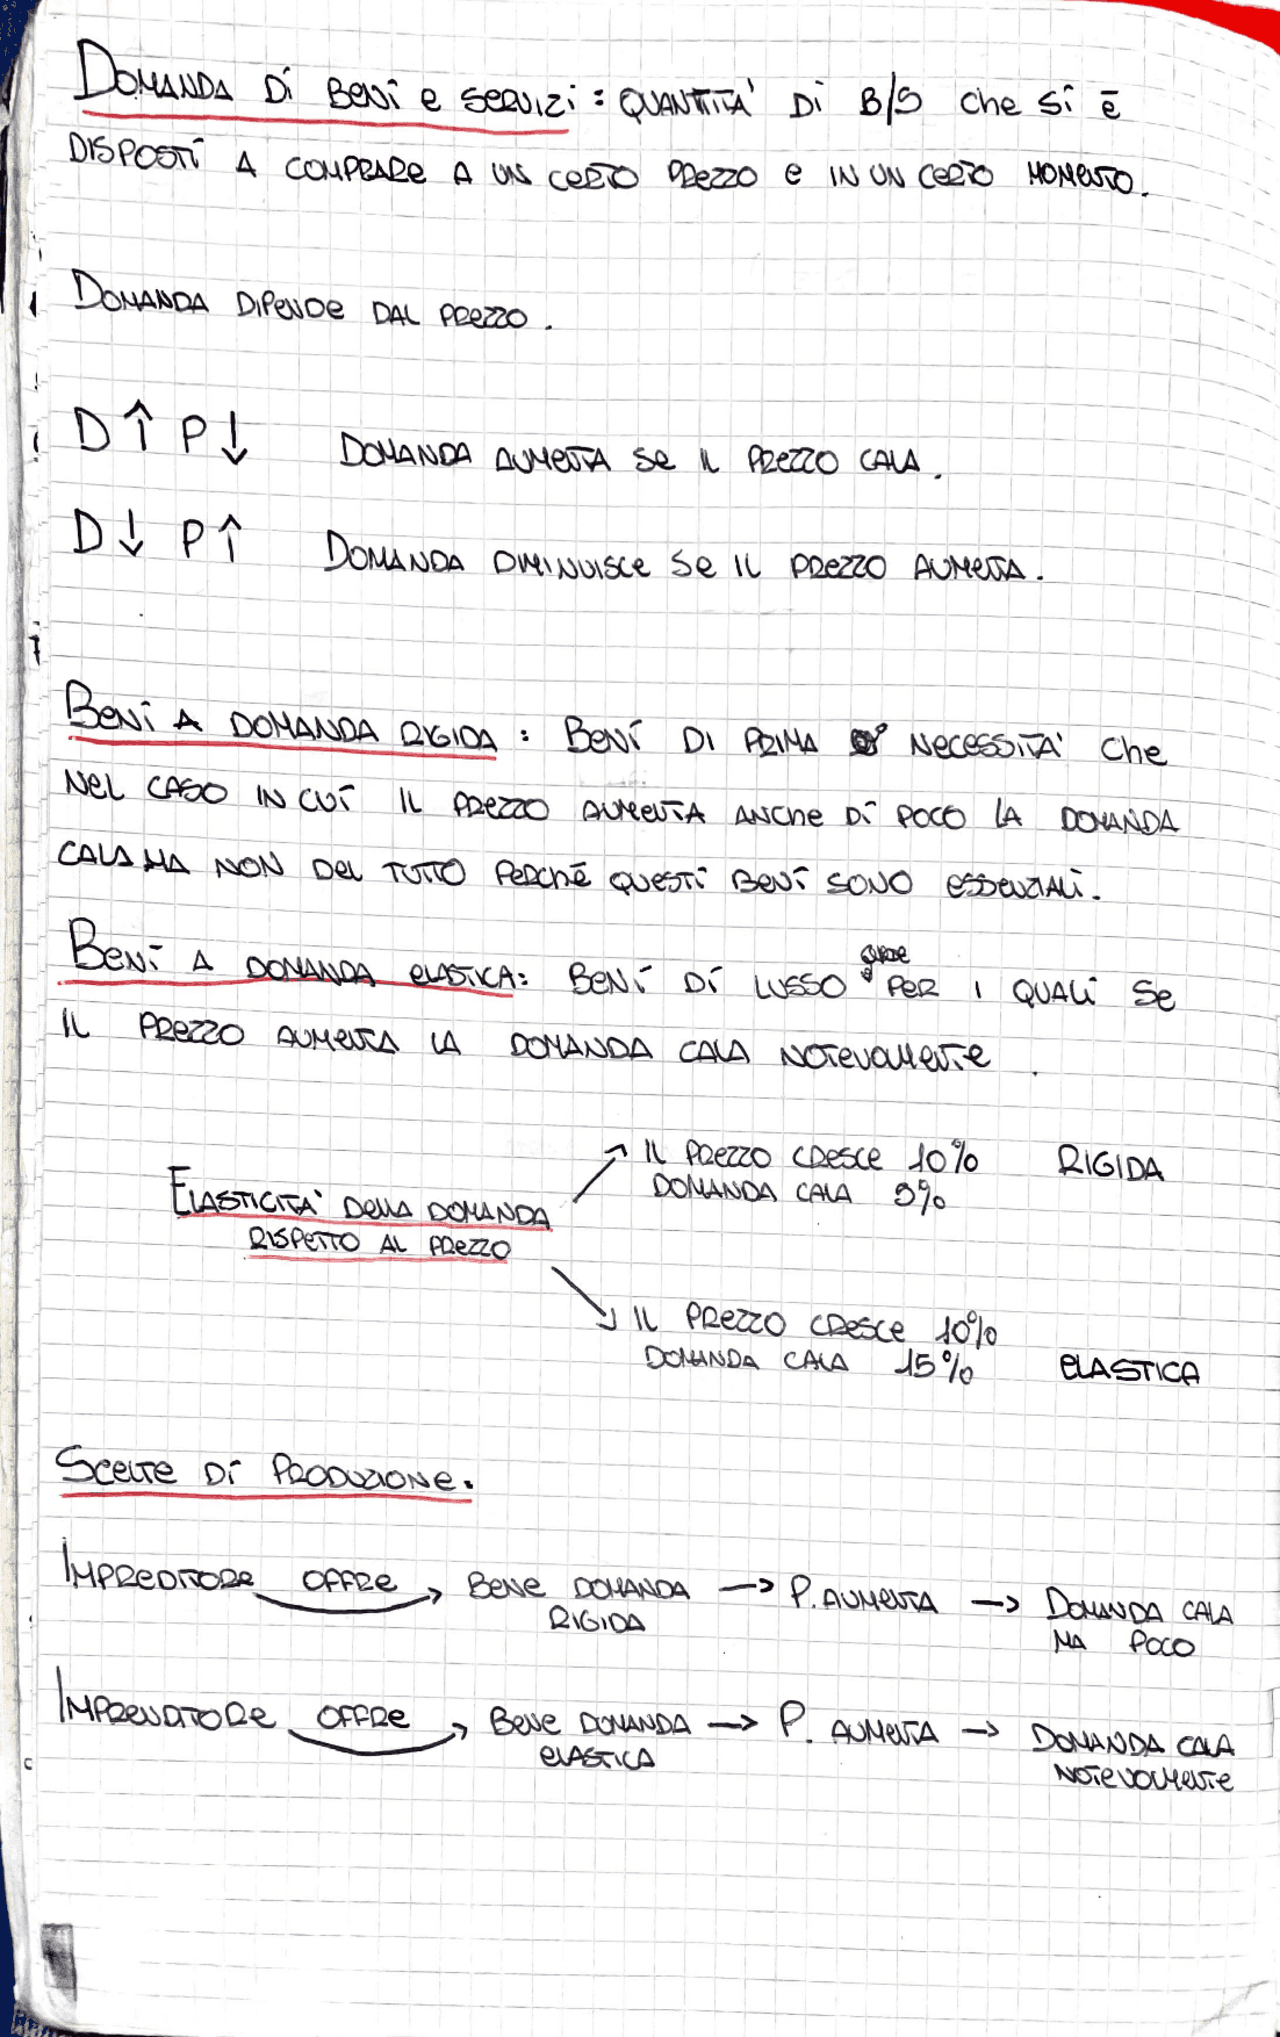 DOMANDA Di BENi e SERVIZi : QUANTITA' Di B/S Che Si è
DISPOSTi A COMPRARE A UN CERTO PREZZO e IN UN CERTO MOMENTO.
DOMANDA DIPENDE DAL PREZZO.
D ↑ P ↓ DOMANDA AUMENTA SE IL PREZZO CALA.
D ↓ P ↑ DOMANDA DIMINUISCE SE IL PREZZO AUMENTA.
BENi A DOMANDA RIGIDA : BENi DI PRIMA NECESSITA' Che
NEL CASO IN CUi IL PREZZO AUMENTA ANCHE Di POCO LA DOMANDA
CALA MA NON DEL TUTTO PERCHÉ QUESTi BENi SONO ESSENZIALi.
BENi A DOMANDA ELASTICA: BENi Di LUSSO PER I QUALi SE
IL PREZZO AUMENTA LA DOMANDA CALA NOTEVOLMENTE.
IL PREZZO CRESCE 10% RIGIDA
DOMANDA CALA 9%
ELASTICITA' DELLA DOMANDA
RISPETTO AL PREZZO
IL PREZZO CRESCE 10%
DOMANDA CALA 15% ELASTICA
SCELTE Di PRODUZIONE.
IMPREDITORE OFFRE → BENE DOMANDA → P. AUMENTA → DOMANDA CALA
RIGIDA MA POCO
IMPRENDITORE OFFRE → BENE DOMANDA → P. AUMENTA → DOMANDA CALA
ELASTICA NOTEVOLMENTE